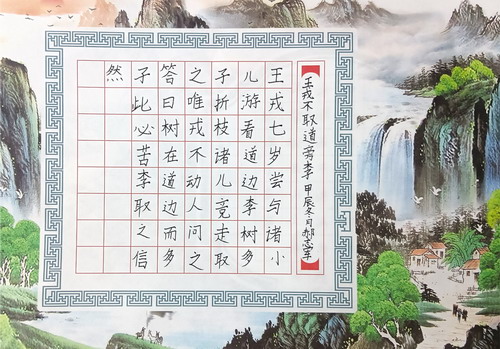 【王戎不取道旁李 甲辰冬月】
王戎七岁尝与诸小
儿游看道边李树多
子折枝诸儿竞走取
之唯戎不动人问之
答曰树在道边而多
子此必苦李取之信
然